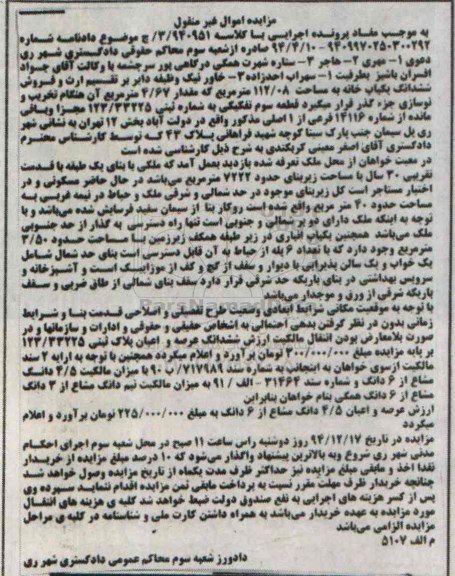 مزایده اموال غیر منقول
به موجب مفاد پرونده اجرایی با کلاسه ۳/۹۴۰۹۵۱/ ج موضوع دادنامه شماره
۹۴۰۹۹۷۰۲۵۰۳۰۰۲۹۲ - ۹۴/۴/۱۰ صادره ازشعبه سوم محاکم حقوقی دادگستری شهر ری
دعوی ۱- مهری ۲- هاجر ۳- ستاره شهرت همگی درگاهی پور سرچشمه با وکالت آقای جواد
افسران باشیز بطرفیت ۱- سهراب احدزاده ۲- خاور نیک وظیفه دایر بر تقسیم ارث و فروش
ششدانگ یکباب خانه به مساحت ۱۱۲/۰۸ مترمربع که مقدار ۴/۶۷ مترمربع آن هنگام تخریب و
نوسازی جزء گذر قرار میگیرد قطعه سوم تفکیکی به شماره ثبتی ۱۲۳/۳۳۲۲۵ مجزا وباقی
مانده از شماره ۱۴۱۱۶ فرعی از ۱ اصلی مذکور واقع در دولت آباد بخش ۱۲ تهران به نشانی شهر
ری پل سیمان جنب پارک سینا کوچه شهید فراهانی پلاک ۴۳ که توسط کارشناس محترم
دادگستری آقای اصغر معینی کریکندی به شرح ذیل کارشناسی شده است
در معیت خواهان از محل ملک تعرفه شده بازدید بعمل آمد که ملکی با بنای یک طبقه با قدمت
تقریبی ۳۰ سال با مساحت زیربنای حدود ۷۲۲۲ مترمربع می‌باشد در حال حاضر مسکونی و در
اختیار مستاجر است کل زیربنای موجود در حد شمالی و شرقی ملک و حیاط در نیمه غربی به
مساحت حدود ۴۰ متر مربع واقع شده است روکار بنا از سیمان سفید فرسایش شده می‌باشد و با
توجه به اینکه ملک دارای دو بر شمالی و جنوبی است تنها راه دسترسی به گذار از حد جنوبی
ملک می‌باشد همچنین یکباب انباری در زیر طبقه همکف زیرزمین با مساحت حدود ۳/۵۰
مترمربع وجود دارد که با تعداد ۶ پله از حیاط به آن قابل دسترسی است بنای حد شمال شامل
یک خواب و یک سالن پذیرایی با دیوار و سقف از گچ و کف از موزاییک است و آشپزخانه و
سرویس بهداشتی در بنای باریکه حد شرقی قرار دارد سقف بنای شمالی از طاق ضربی و سقف
باریکه شرقی از ورق و موجدار می‌باشد
با توجه به موقعیت مکانی شرایط ابعادی وضعیت طرح تفصیلی و اصلاحی قدمت بنا و شرایط
زمانی بدون در نظر گرفتن بدهی احتمالی به اشخاص حقیقی و حقوقی و ادارات و سازمانها و در
صورت بلامعارض بودن انتقال مالکیت ارزش ششدانگ عرصه و اعیان پلاک ثبتی ۱۲۳/۳۳۲۲۵
بر پایه مزایده مبلغ ۳۰۰/۰۰۰/۰۰۰ تومان برآورد و اعلام میگردد همچنین با توجه به ارایه ۲ سند
مالکیت ازسوی خواهان به اینجانب به شماره سند ۷۱۷۹۸۹/ ب ۹۰ با میزان مالکیت ۴/۵ دانگ
مشاع از ۶ دانگ و شماره سند ۳۱۴۶۴ - الف / ۹۱ به میزان مالکیت نیم دانگ مشاع از ۳ دانگ
مشاع از ۶ دانگ همگی بنام خواهان بنابراین
ارزش عرصه و اعیان ۴/۵ دانگ مشاع از ۶ دانگ به مبلغ ۲۲۵/۰۰۰/۰۰۰ تومان برآورد و اعلام
میگردد
مزایده در تاریخ ۹۴/۱۲/۱۷ روز دوشنبه راس ساعت ۱۱ صبح در محل شعبه سوم اجرای احکام
مدنی شهر ری شروع وبه بالاترین پیشنهاد واگذار می‌شود که ۱۰ درصد مبلغ مزایده از خریدار
نقدا اخذ و مابقی مبلغ مزایده نیز حداکثر ظرف مدت یکماه از تاریخ مزایده وصول خواهد شد
چنانچه خریدار ظرف مهلت مقرر نسبت به پرداخت مابقی ثمن مزایده اقدام ننماید سپرده وی
پس از کسر هزینه های اجرایی به نفع صندوق دولت ضبط خواهد شد کلیه ی هزینه های انتقال
مورد مزایده به عهده خریدار می‌باشد به همراه داشتن کارت ملی و شناسنامه در کلیه ی مراحل
مزایده الزامی می‌باشد
م الف ۵۱۰۷
دادورز شعبه سوم محاکم عمومی دادگستری شهر ری